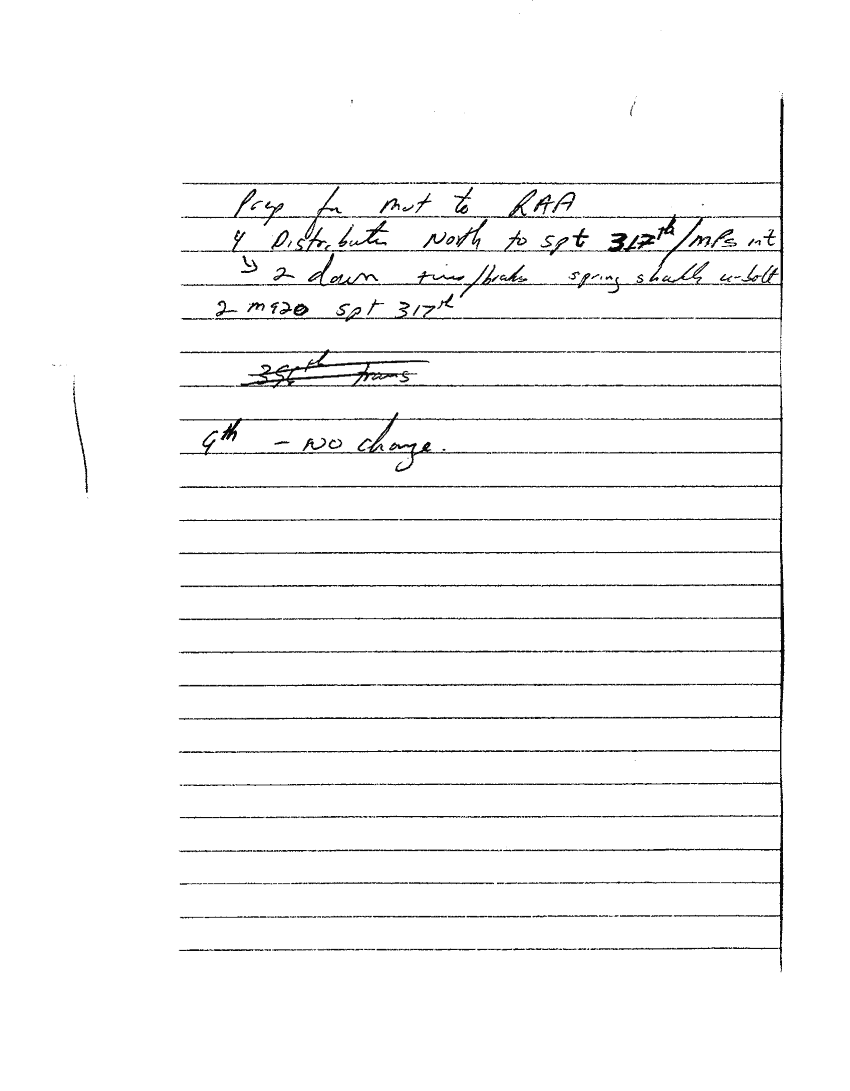 Prep for mvt to RAA
4 Distributors North to spt 317th/MPs mt
↳ 2 down tires/brakes spring shackle u-bolt
2 m920 spt 317th
trans
9th - NO change.